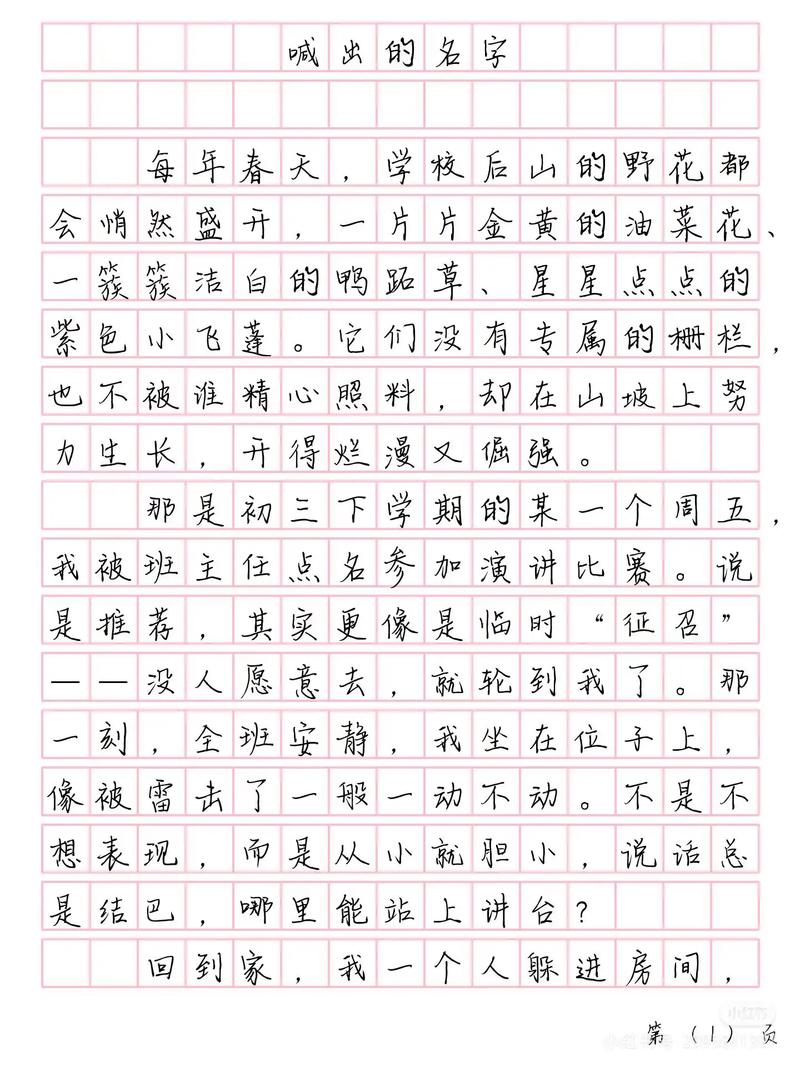 喊出的名字
每年春天，学校后山的野花都
会悄然盛开，一片片金黄的油菜花、
一簇簇洁白的鸭跖草、星星点点的
紫色小飞蓬。它们没有专属的栅栏，
也不被谁精心照料，却在山坡上努
力生长，开得烂漫又倔强。
那是初三下学期的某一个周五，
我被班主任点名参加演讲比赛。说
是推荐，其实更像是临时“征召”
——没人愿意去，就轮到我了。那
一刻，全班安静，我坐在位子上，
像被雷击了一般一动不动。不是不
想表现，而是从小就胆小，说话总
是结巴，哪里能站上讲台？
回到家，我一个人躲进房间，
小红书
第（1）页